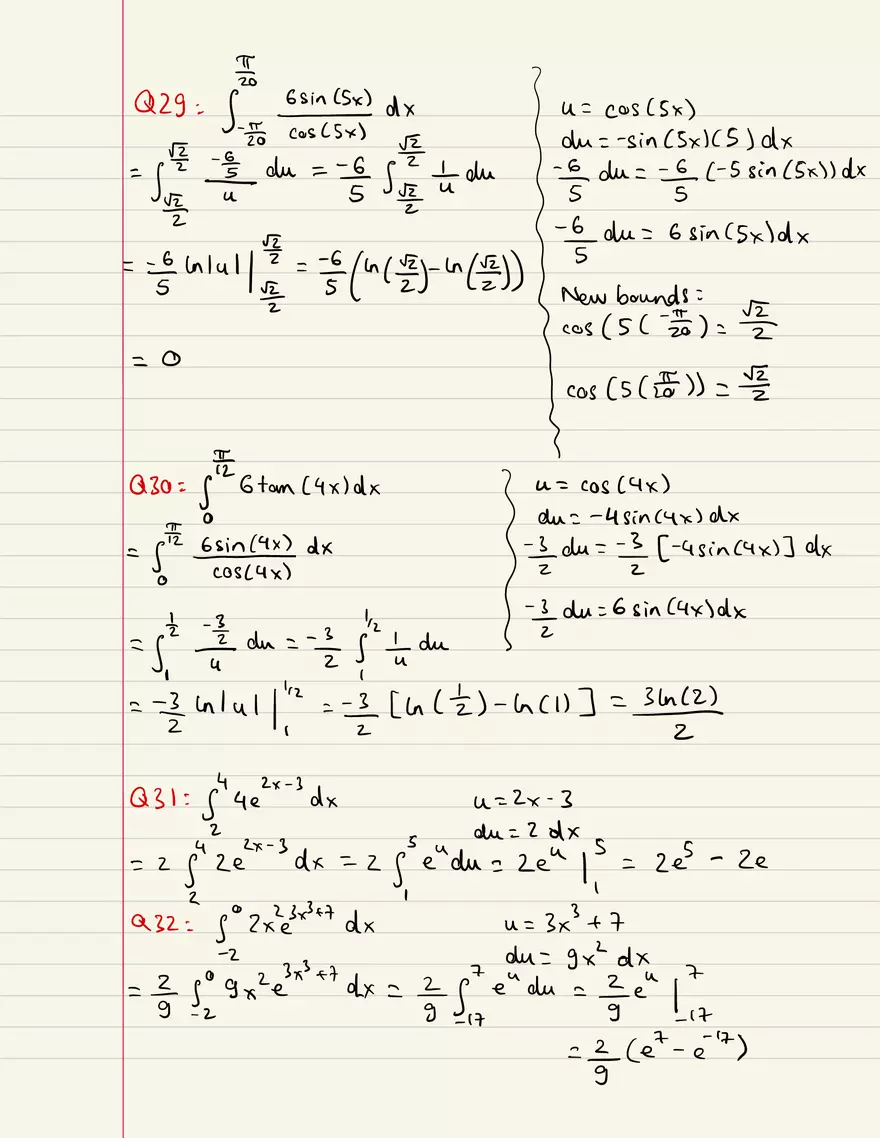 Q29: ∫_{-π/20}^{π/20} 6sin(5x)/cos(5x) dx
= ∫_{√2/2}^{√2/2} (-6/5)/u du = -6/5 ∫_{√2/2}^{√2/2} 1/u du
= -6/5 ln|u| |_{√2/2}^{√2/2} = -6/5 (ln(√2/2)-ln(√2/2))
= 0
u = cos(5x)
du = -sin(5x)(5) dx
-6/5 du = -6/5 (-5 sin(5x)) dx
-6/5 du = 6 sin(5x)dx
New bounds:
cos(5(-π/20) = √2/2
cos(5(π/20)) = √2/2
Q30: ∫_0^{π/12} 6tan(4x)dx
= ∫_0^{π/12} 6sin(4x)/cos(4x) dx
= ∫_1^{1/2} (-3/2)/u du = -3/2 ∫_1^{1/2} 1/u du
= -3/2 ln|u| |_1^{1/2} = -3/2 [ln(1/2)-ln(1)] = 3ln(2)/2
u = cos(4x)
du = -4sin(4x) dx
-3/2 du = -3/2 [-4sin(4x)] dx
-3/2 du = 6 sin(4x)dx
Q31: ∫_2^4 4e^{2x-3} dx
u = 2x - 3
du = 2 dx
= 2 ∫_2^4 2e^{2x-3} dx = 2 ∫_1^5 e^u du = 2e^u |_1^5 = 2e^5 - 2e
Q32: ∫_{-2}^0 2x^2e^{3x^3+7} dx
u = 3x^3 + 7
du = 9x^2 dx
= 2/9 ∫_{-2}^0 9x^2 e^{3x^3+7} dx = 2/9 ∫_{-17}^7 e^u du = 2/9 e^u |_{-17}^7
= 2/9 (e^7 - e^{-17})